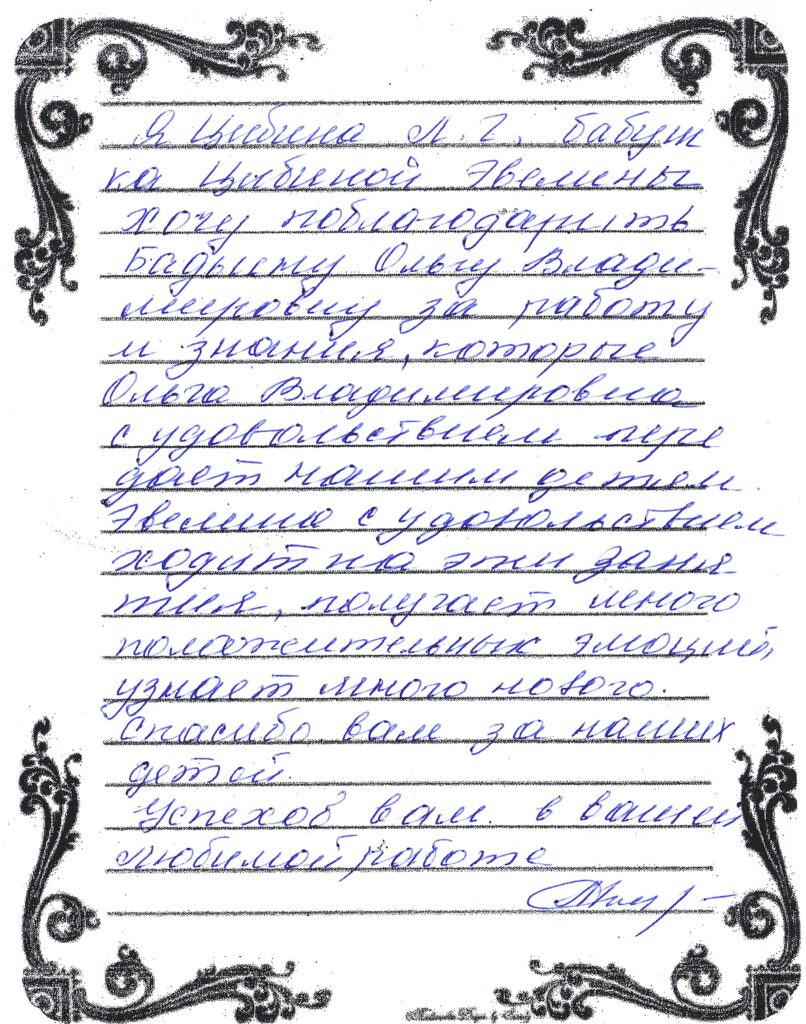 Я Цибина Л. Г. бабуш
ка Цибиной Эвелины
хочу поблагодарить
Ольгу Влади-
мировну за работу
и знания, которые
Ольга Владимировна
с удовольствием пере
дает нашим детям.
Эвелина с удовольствием
ходит на эти заня
тия, получает много
положительных эмоций,
узнает много нового.
Спасибо вам за наших
детей.
Успехов вам в вашей
любимой работе